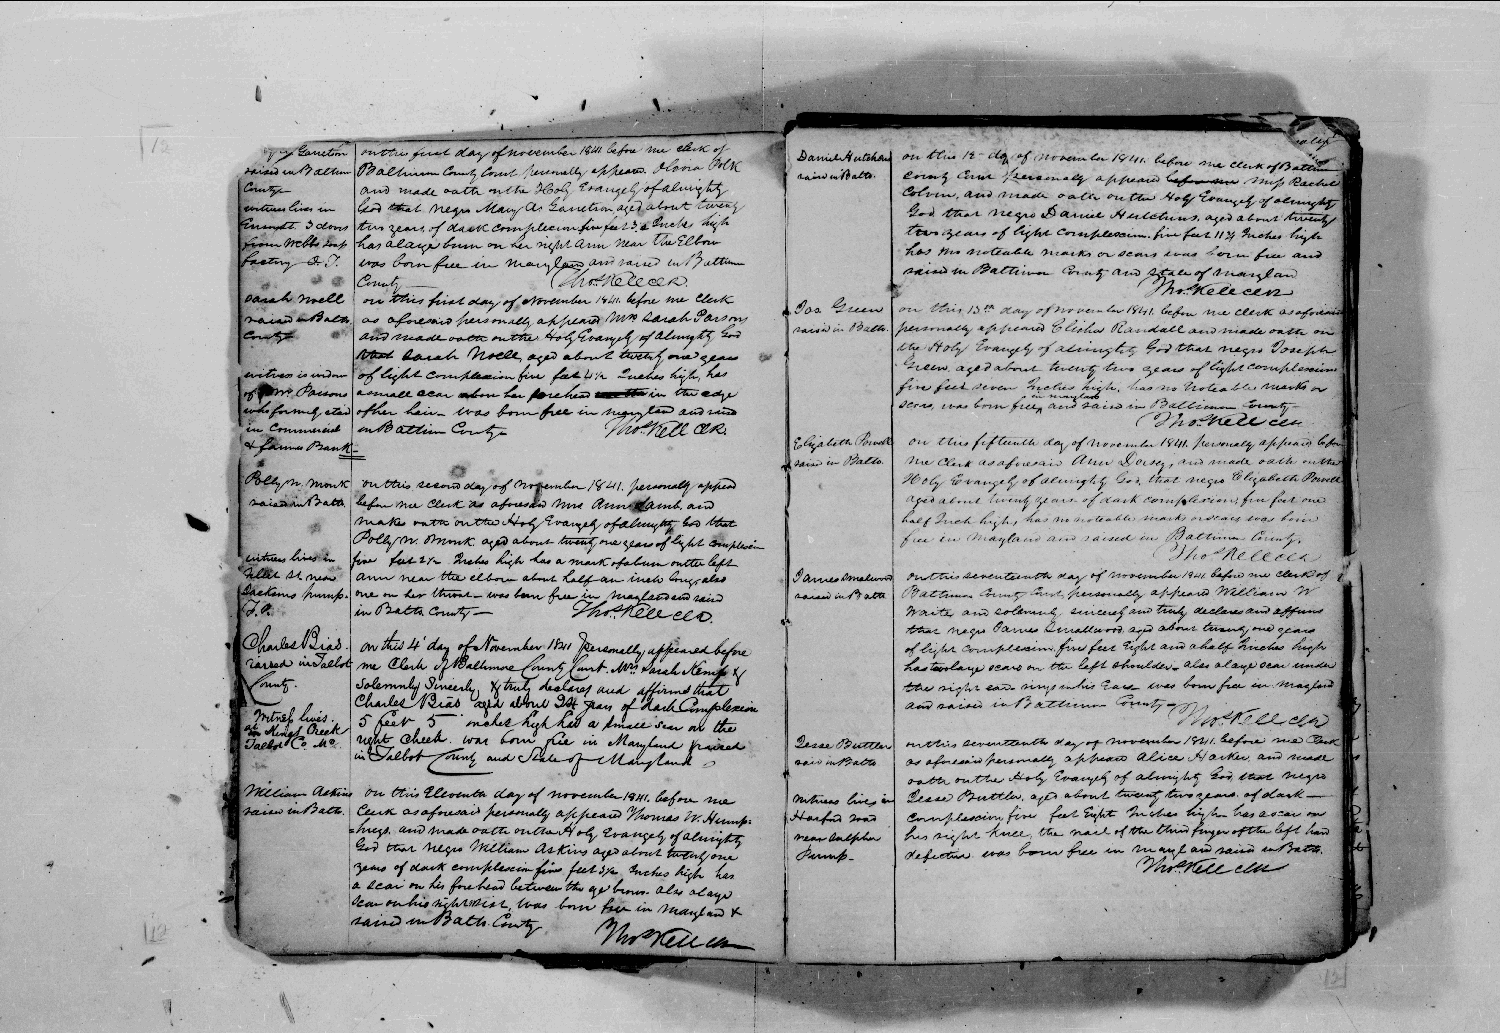 Ganetson
raised in Baltim
County
witness lives in
3 doors
from Webbs
factory O. T.
on the first day of November 1841 before me clerk of
Baltimore County Court personally appeared Polk
and made oath on the Holy Evangely of almighty
God that negro Mary A. Ganetson aged about twenty
two years of dark complexion five feet 3 Inches high
has a large burn on her right arm near the Elbow
was born free in maryland and raised in Baltimore
County
Thos. Kell Clk.
Sarah Noell
raised in Balto
County
witness is widow
of Mr. Parsons
who formerly
in Commercial
& farmers Bank
on this first day of November 1841. before me Clerk
as aforesaid personally appeared Mrs. Sarah Parsons
and made oath on the Holy Evangely of almighty God
that Sarah Noell, aged about twenty one years
of light complexion five feet 4½ Inches high, has
a small scar above her forehead in the edge
of her hair - was born free in maryland and raised
in Baltim County
Thos. Kell Clk.
Polly W. Monk
raised in Balto.
witness lives in
st. near
pump.
on this second day of November 1841. personally appeared
before me Clerk as aforesaid Mrs Ann Lamb, and
makes oath on the Holy Evangely of almighty God that
Polly W. Monk aged about twenty one years of light complexion
five feet 2½ Inches high has a mark of a burn on the left
arm near the elbow about half an inch long, also
one on her throat - was born free in maryland and raised
in Balto County
Thos. Kell Clk.
Charles Bias.
raised in Talbot
County.
Witness lives.
in Kings Creek
Talbot Co. Md.
on this 4' day of November 1841 personally appeared before
me Clerk of Baltimore County Court Mrs. Sarah Kemp &
Solemnly Sincerely & truly declares and affirms that
Charles Bias aged about 24 years of dark Complexion
5 feet 5 inches high has a small scar on the
right Cheek. was born free in Maryland & raised
in Talbot County and State of Maryland
William Askins
raised in Balto.
on this Eleventh day of november 1841. before me
Clerk as aforesaid personally appeared Thomas W. Hump-
=hreys. and made oath on the Holy Evangely of almighty
God that negro William Askins aged about twenty one
years of dark complexion five feet 3½ Inches high has
a scar on his forehead between the eye brows. also a large
scar on his right wrist, was born free in maryland &
raised in Balto. County
Thos. Kell Clk
Daniel Hutchins
raised in Balto.
on this 12 day of november 1841. before me clerk of Baltimore
County Court personally appeared before me Miss Rachel
Colvin, and made oath on the Holy Evangely of almighty
God that negro Daniel Hutchins, aged about twenty
two years of light complexion. five feet 11¼ Inches high
has no noteable marks or scars was born free and
raised in Baltimore County and state of maryland
Thos. Kell Clk
Jos. Green
raise in Balto.
on this 13th day of november 1841. before me clerk as aforesaid
personally appeared Elisha Randall and made oath on
the Holy Evangely of almighty God that negro Joseph
Green, aged about twenty two years of light complexion
five feet seven Inches high, has no noteable marks or
scars, was born free, in maryland and raised in Baltimore County
Thos. Kell Clk
Elizabeth Powell
raised in Balto.
on this fifteenth day of november 1841. personally appeared before
me Clerk as aforesaid Ann Dorsey, and made oath on the
Holy Evangely of almighty God, that negro Elizabeth Powell
aged about twenty years of dark complexion, five feet one
half Inch high, has no noteable marks or scars was born
free in Mayland and raised in Baltimore County.
Thos. Kell Clk
James Smallwood
raised in Balto
on this seventeenth day of november 1841 before me clerk of
Baltimore County Court, personally appeared William W
Waite and solemnly, sincerely and truly declares and affirms
that negro James Smallwood aged about twenty one years
of light complexion five feet Eight and a half Inches high
has two large scars on the left shoulder. also a large scar under
the right ear - rings in his Ears - was born free in maryland
and raised in Baltimore County
Thos. Kell Clk
Jesse Buttler
raised in Balto
witness lives in
Harford road
near Sulpher
Pump
on this seventeenth day of november 1841. before me Clerk
as aforesaid personally appeared Alice Harker, and made
oath on the Holy Evangely of almighty God that negro
Jesse Buttler, aged about twenty two years. of dark
complexion, five feet Eight Inches high - has a scar on
his right knee, the nail of the third finger of the left hand
defective was born free in maryland raised in Balto.
Thos. Kell Clk